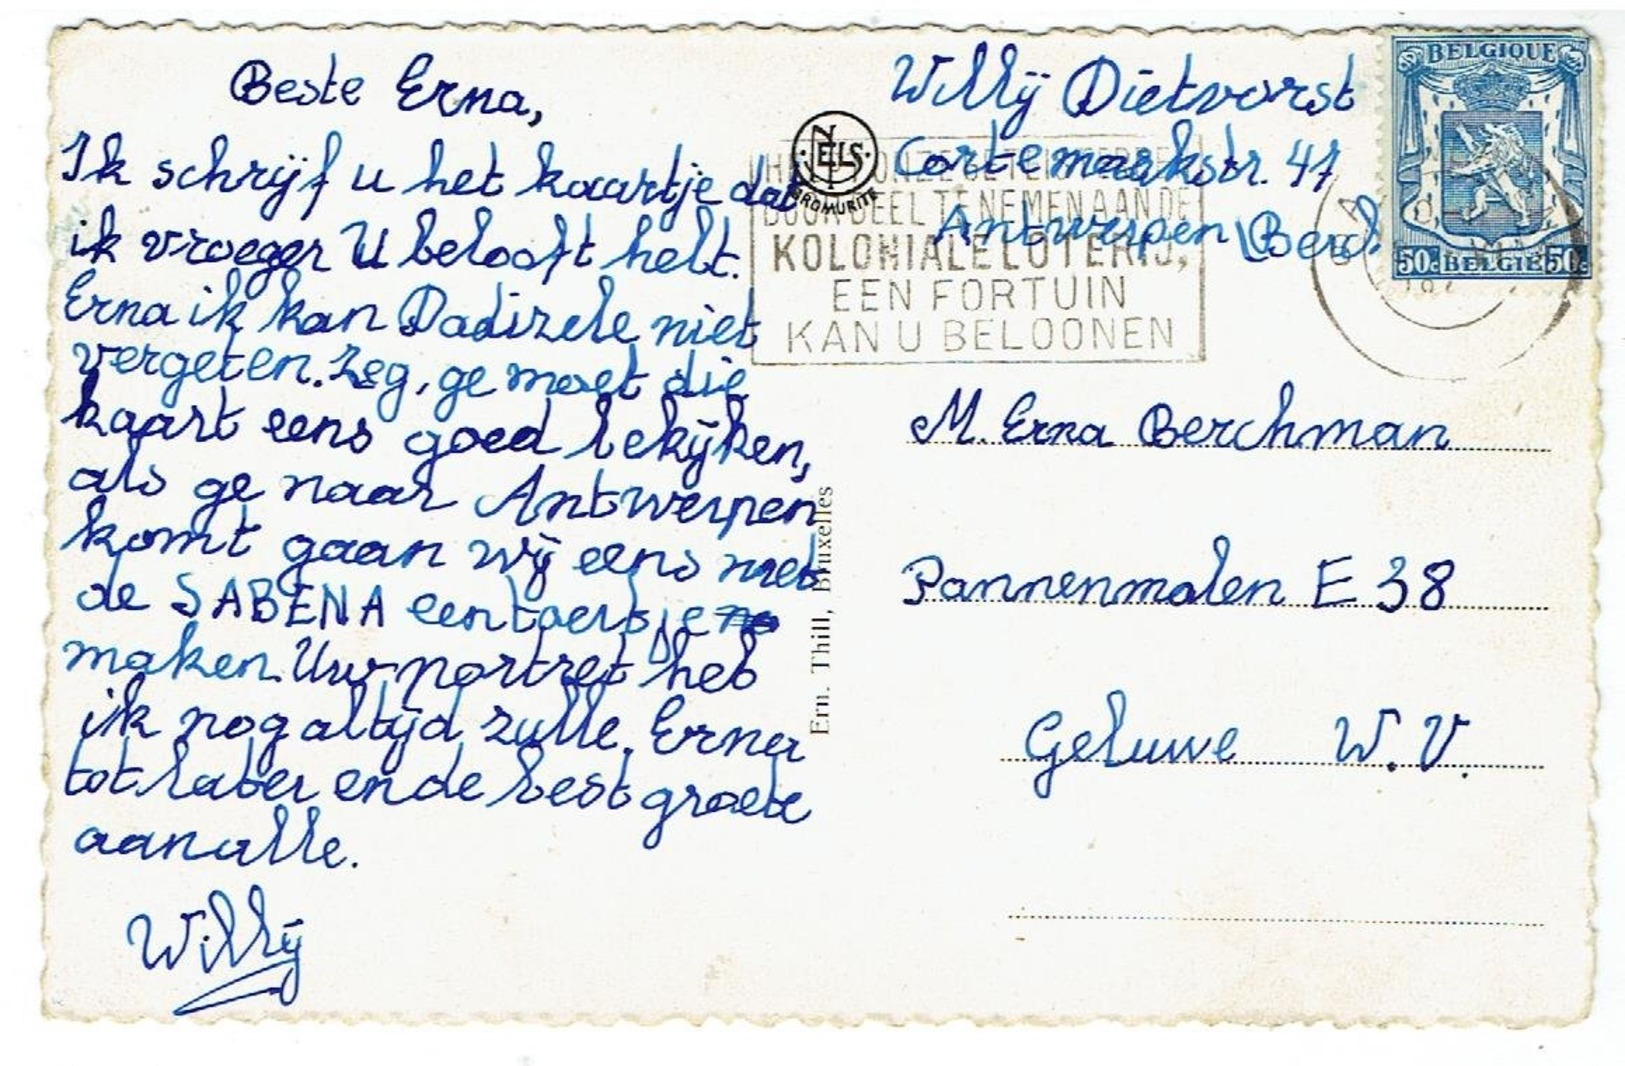 Beste Erna,
Ik schrijf u het kaartje dat
ik vroeger U belooft hebt.
Erna ik kan Dadizele niet
vergeten. Zeg, ge moet die
kaart eens goed bekijken,
als ge naar Antwerpen
komt gaan wij eens met
de SABENA een toertje
maken. Uw portret heb
ik nog altijd zulle, Erna
tot later en de best groete
aan alle.
Willÿ
NELS
BROMURITE
Ern. Thill, Bruxelles
Willÿ Dietvorst
Cortemarkstr. 47
Antwerpen (Berch
DEEL TE NEMEN AAN DE
KOLONIALE LOTERIJ,
EEN FORTUIN
KAN U BELOONEN
BELGIQUE
50c BELGIE 50c
M. Erna Berchman
Pannenmolen E 38
Geluwe W.V.